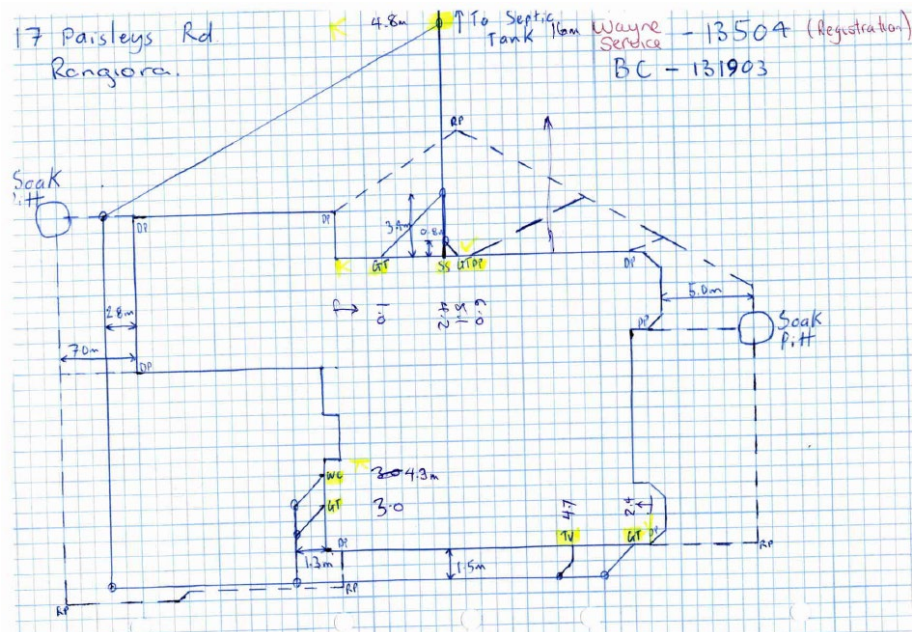 17 Paisleys Rd
Rangiora.
4.8m
↑ To Septic
Tank 16m
Wayne
Service - 13504 (Registration)
BC - 131903
RP
Soak
Pitt
DP
DP
3.4m
0.8m
GT
SS
GT
DP
DP
1.0
2.4
1.6
0.9
5.0m
DP
Soak
Pitt
2.8m
7.0m
DP
WC
3.0 4.3m
GT
3.0
DP
1.3m
4.7
2.4
TV
GT
DP
1.5m
RP
RP
RP